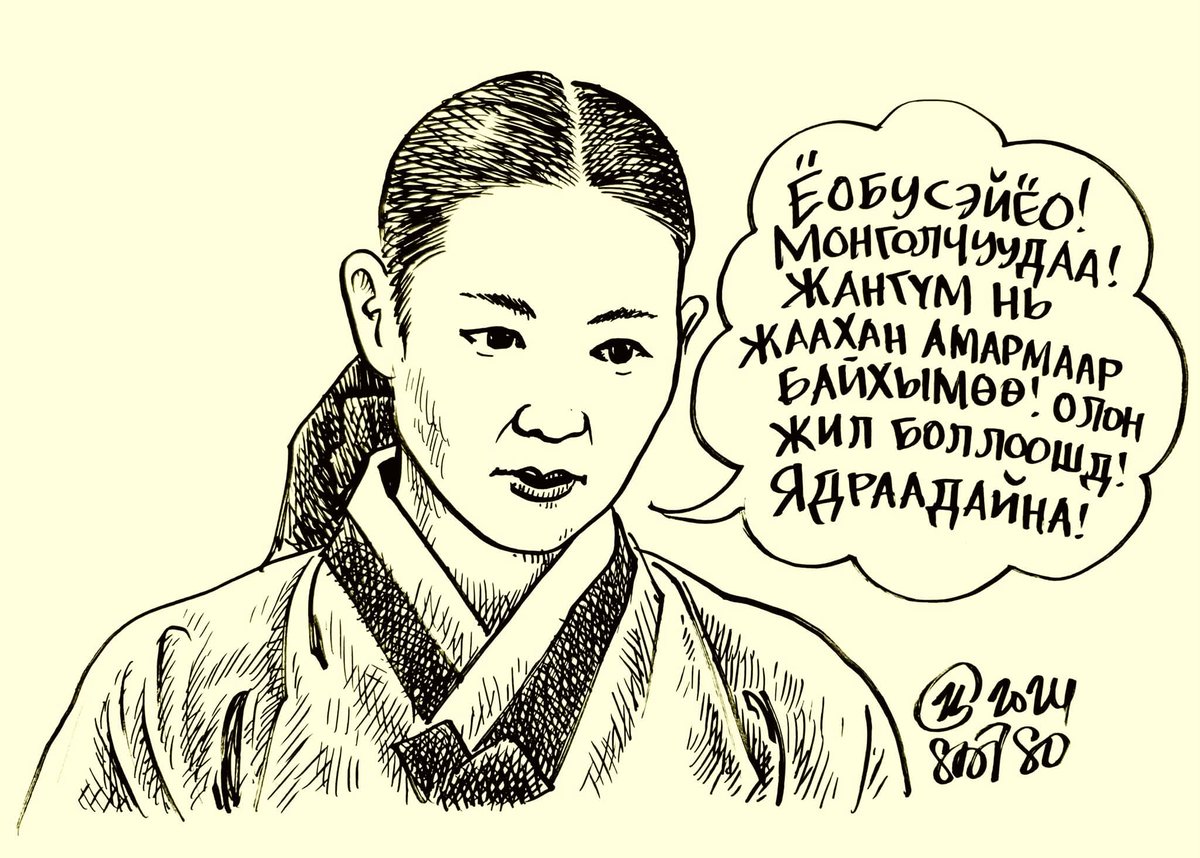 ЁОБУСЭЙЁО!
МОНГОЛЧУУДАА!
ЖАНГҮМ НЬ
ЖААХАН АМАРМААР
БАЙХЫМӨӨ! ОЛОН
ЖИЛ БОЛЛООШД!
ЯДРААДАЙНА!
2024